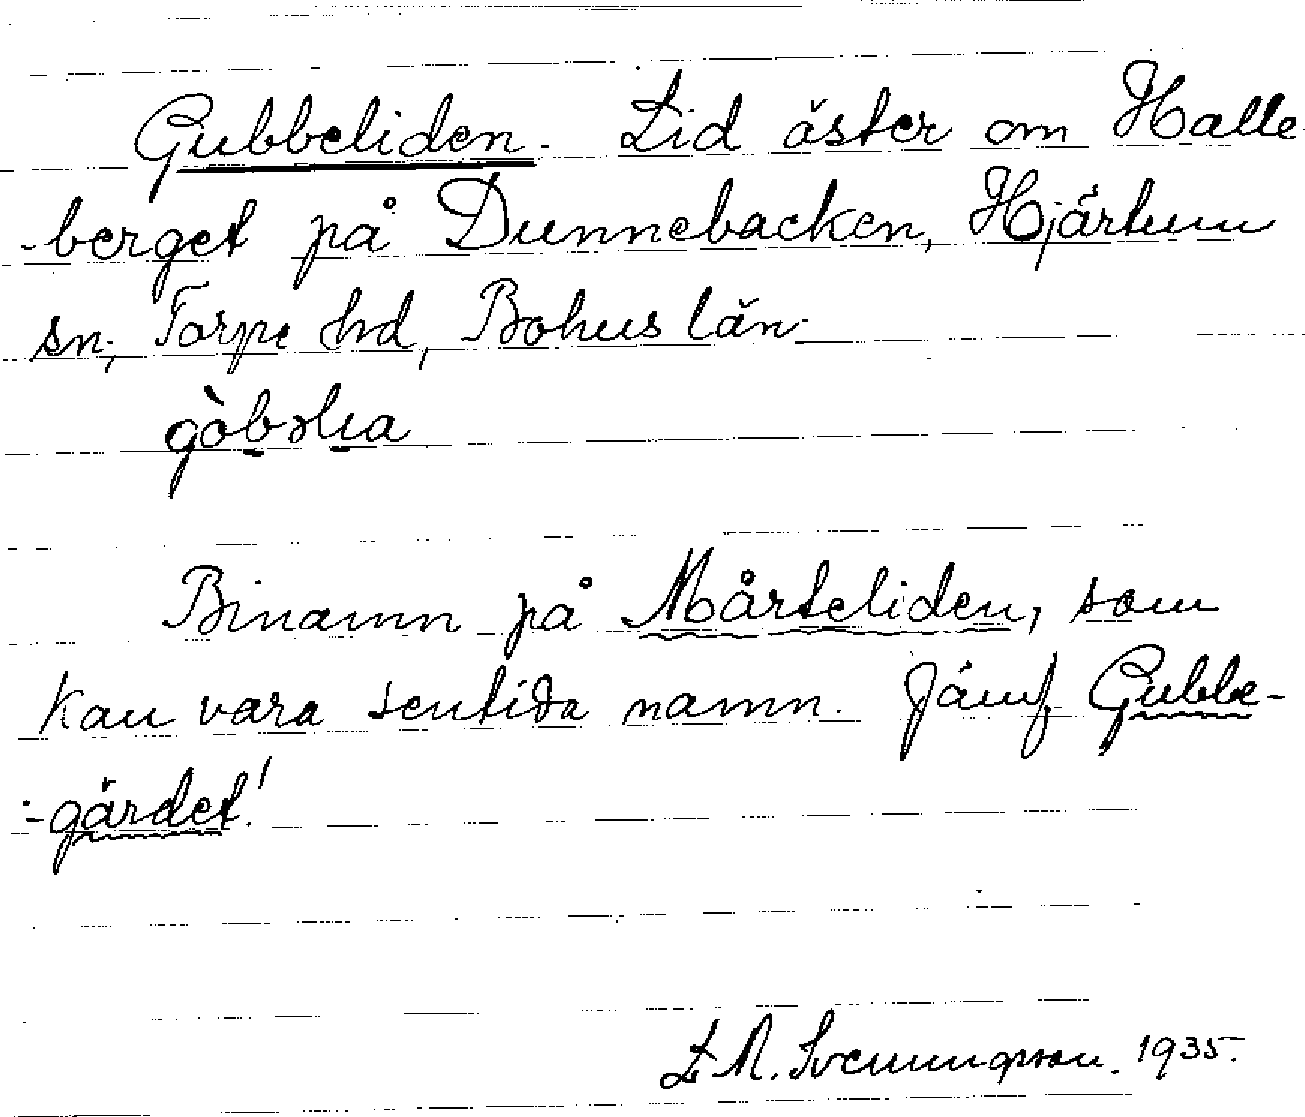 Gubbeliden. Lid öster om Halle-
-berget på Dunnebacken, Hjärtum
sn, Torpe hd, Bohus län.
Binamn på Mårteliden, som
kan vara sentida namn. Jämf. Gubbe-
-gärdet!
M. Svenungsson. 1935.